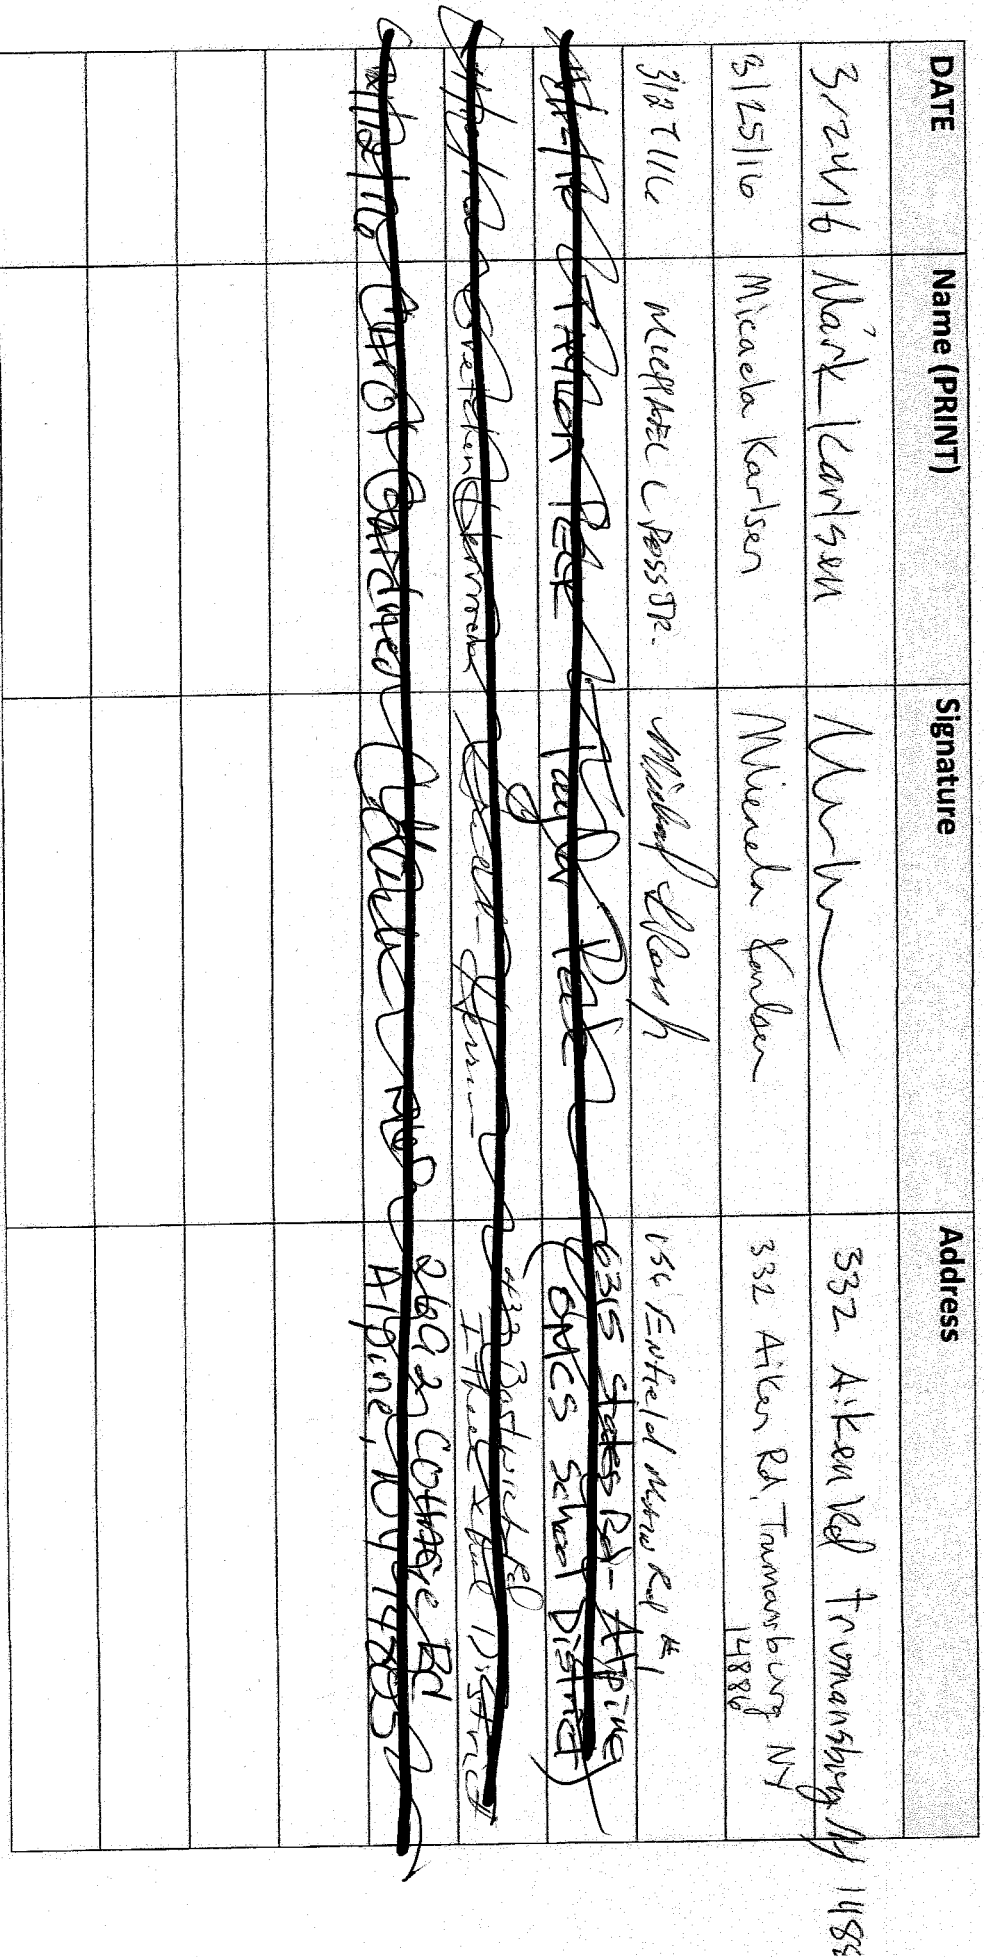 DATE Name (PRINT) Signature Address
3/24/16 Mark Karlsen 332 Aiken Rd Trumansburg NY 1488
3/25/16 Micaela Karlsen Micaela Karlsen 332 Aiken Rd, Trumansburg NY
14886
3/27/16 Michael L Ross JR. Michael L Ross Jr 156 Enfield Main Rd #1
TAYLOR PECK Taylor Peck 6315 State Rd - Alpine
(OMCS School District)
Gretchen Rd
Ithaca District
4/12/16 Carol Gardner 2692n Cottage Rd
Alpine, NY 14805